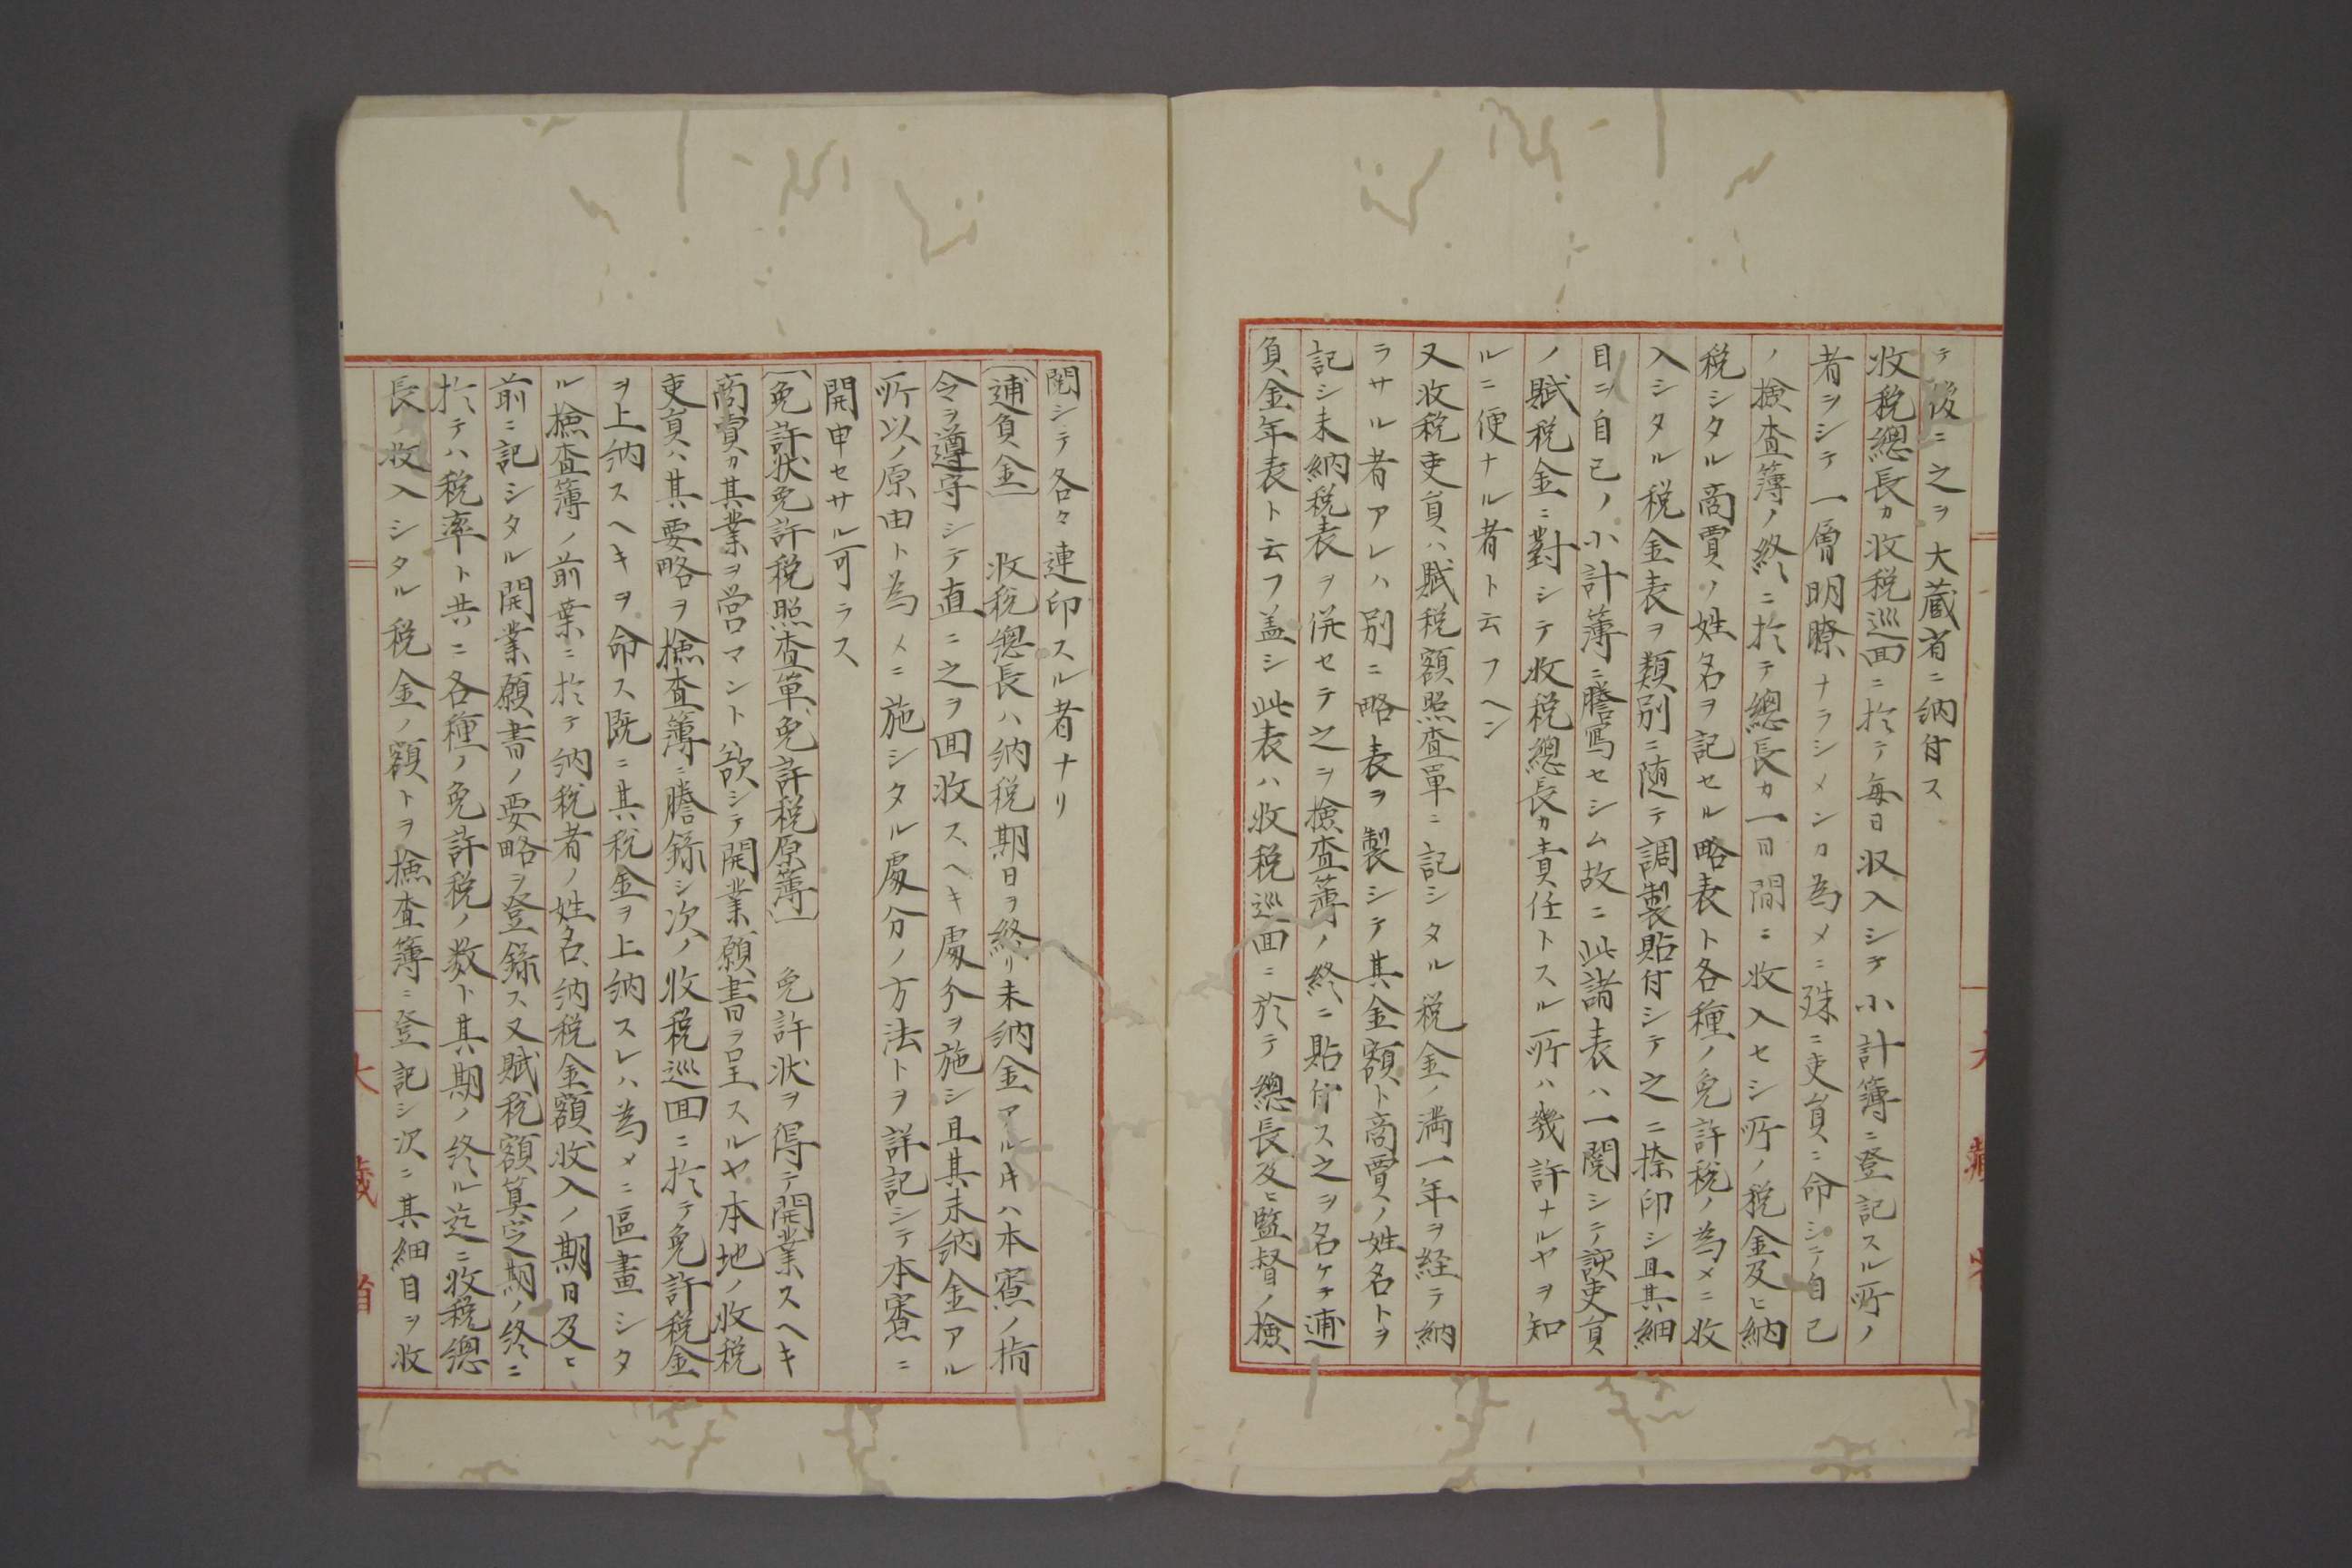 テ後ニ之ヲ大蔵省ニ納付ス
收税總長カ收税巡回ニ於テ毎日収入シテ小計簿ニ登記スル所ノ
者ヲシテ一層明瞭ナラシメンカ為メニ殊ニ吏員ニ命シテ自己
ノ検査簿ノ終ニ於テ總長カ一日間ニ收入セシ所ノ税金及ヒ納
税シタル商賈ノ姓名ヲ記セル略表ト各種ノ免許税ノ為メニ收
入シタル税金表ヲ類別ニ随テ調製貼付シテ之ニ捺印シ且其細
目ヲ自己ノ小計簿ニ謄寫セシム故ニ此諸表ハ一閲シテ該吏員
ノ賦税金ニ對シテ收税總長カ責任トスル所ハ幾許ナルヤヲ知
ルニ便ナル者ト云フヘシ
又收税吏員ハ賦税額照査單ニ記シタル税金ノ満一年ヲ経テ納
ラサル者アレハ別ニ略表ヲ製シテ其金額ト商賈ノ姓名トヲ
記シ未納税表ヲ併セテ之ヲ検査簿ノ終ニ貼付ス之ヲ名ケテ逋
負金年表ト云フ盖シ此表ハ收税巡回ニ於テ總長及ヒ監督ノ檢
閲シテ各々連印スル者ナリ
〔逋負金〕　收税總長ハ納税期日ヲ終リ未納金アル片ハ本寮ノ指
令ヲ遵守シテ直ニ之ヲ回收スヘキ處分ヲ施シ且其未納金アル
所以ノ原由ト為メニ施シタル處分ノ方法トヲ詳記シテ本寮ニ
開申セサル可ラス
〔免許状免許税照査單免許税原簿〕　免許状ヲ得テ開業スヘキ
商賈カ其業ヲ営マント欲シテ開業願書ヲ呈スルヤ本地ノ收税
吏員ハ其要略ヲ撿査簿ニ謄錄シ次ノ收税巡回ニ於テ免許税金
ヲ上納スヘキヲ命ス既ニ其税金ヲ上納スレハ為メニ區畫シタ
ル撿査簿ノ前葉ニ於テ納税者ノ姓名、納税金額收入ノ期日及ヒ
前ニ記シタル開業願書ノ要略ヲ登録ス又賦税額算定期ノ終ニ
於テハ税率ト共ニ各種ノ免許税ノ数ト其期ノ終ル迄ニ收税總
長ノ收入シタル税金ノ額トヲ撿査簿ニ登記シ次ニ其細目ヲ收
大蔵省
大藏省